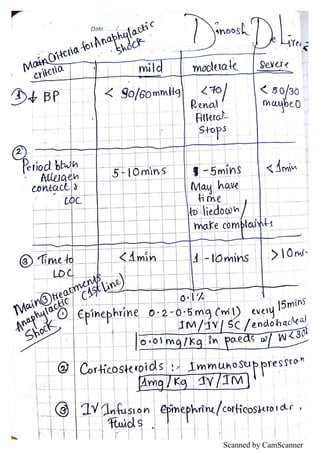 Date:
Dinoosh De Livera
Main Criteria for Anaphylactic Shock
criteria
mild
moderate
severe
① ↓ BP
< 90/60mmHg
<70/
Renal
Filterat-
Stops
< 50/30
maybe 0
②
Period btwn
Allergen
contact &
LOC
5-10mins
-5mins
May have
time
to liedown/
make complaints
<1min
③ Time to
LOC
<1min
1-10mins
>10m
Main ③ treatments
Anaphylactic (1st Line)
Shock
0.1%
① Epinephrine 0.2-0.5mg (ml) every 15mins
IM/IV/SC/endotracheal
0.01mg/Kg in paeds w/ W<30
② Corticosteroids :- Immunosuppression
1mg/Kg IV/IM
③ IV Infusion Epinephrine/corticosteroids,
Fluids.
Scanned by CamScanner